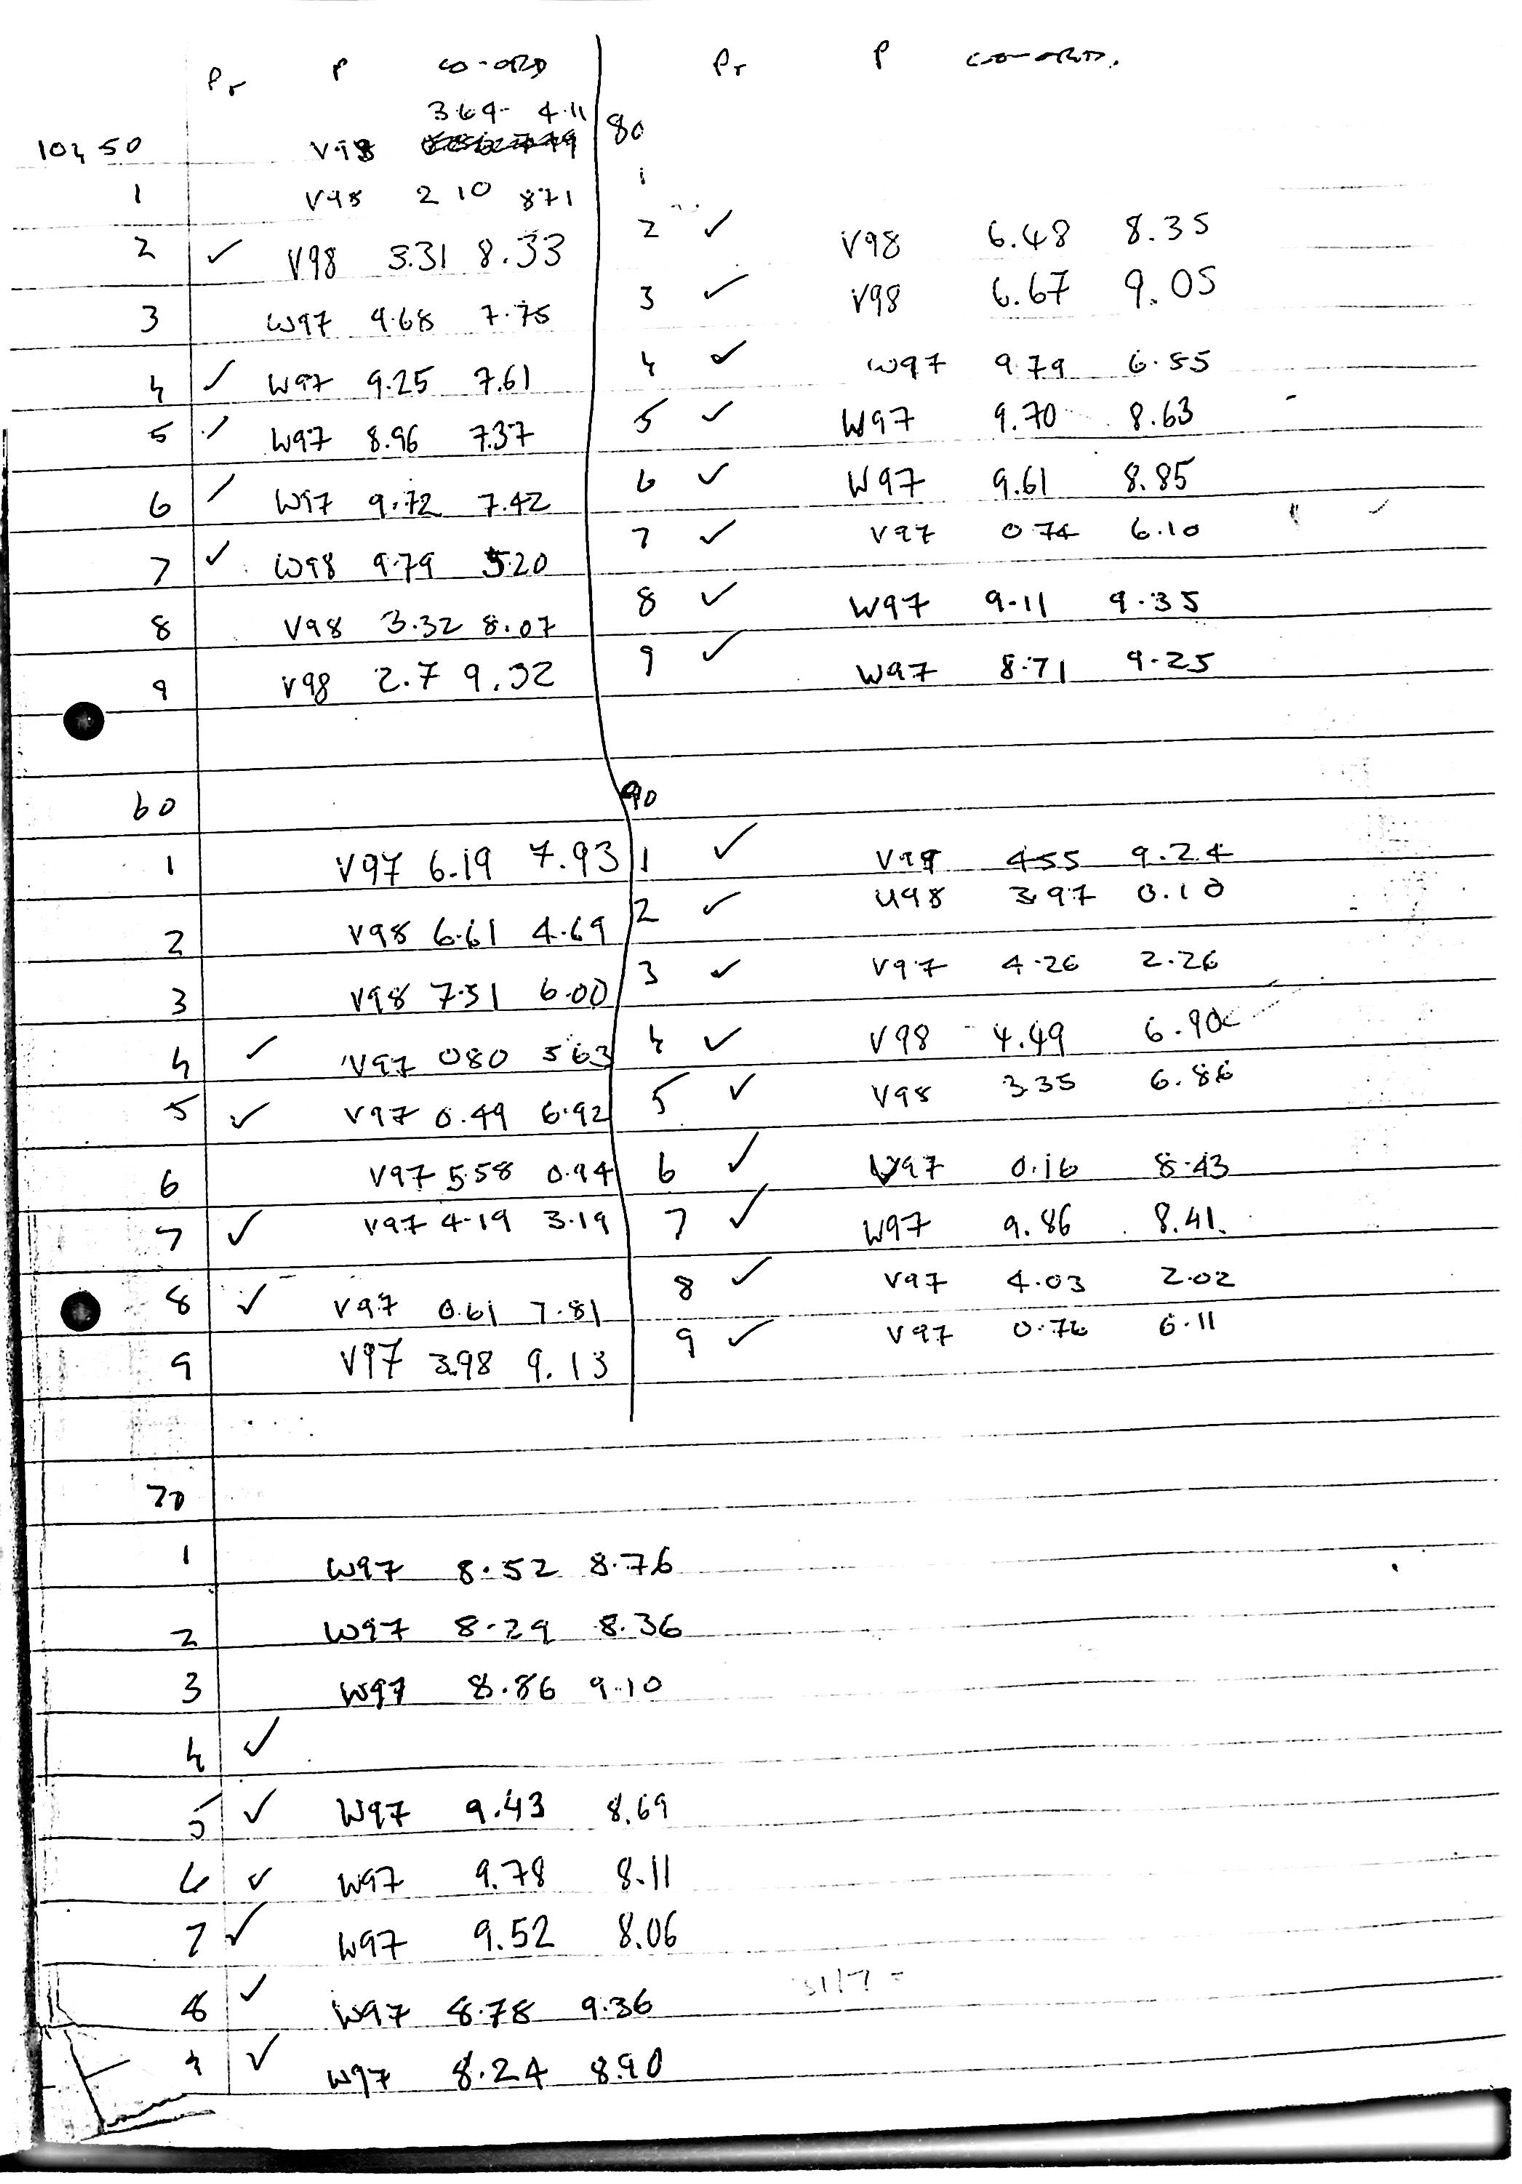 Pr P CO-ORD
3.64 4.11
10450 V98
1 V98 2 10 871
2 ✓ V98 3.31 8.33
3 W97 9.68 7.75
4 ✓ W97 9.25 7.61
5 ✓ W97 8.96 7.37
6 ✓ W97 9.72 7.42
7 ✓ W98 9.79 5.20
8 V98 3.32 8.07
9 V98 2.7 9.32
60
1 V97 6.19 7.93
2 V98 6.61 4.69
3 V98 7.51 6.00
4 ✓ V97 080 563
5 ✓ V97 0.49 6.92
6 V97 5.58 0.94
7 ✓ V97 4.19 3.19
8 ✓ V97 0.61 7.81
9 V97 3.98 9.13
70
1 W97 8.52 8.76
2 W97 8.29 8.36
3 W97 8.86 9.10
4 ✓
5 ✓ W97 9.43 8.69
6 ✓ W97 9.78 8.11
7 ✓ W97 9.52 8.06
8 ✓ W97 8.78 9.36
9 ✓ W97 8.24 8.90
Pr P CO-ORD.
80
1
2 ✓ V98 6.48 8.35
3 ✓ V98 6.67 9.05
4 ✓ W97 9.79 6.55
5 ✓ W97 9.70 8.63
6 ✓ W97 9.61 8.85
7 ✓ V97 0.74 6.10
8 ✓ W97 9.11 9.35
9 ✓ W97 8.71 9.25
90
1 ✓ 455 9.24
2 ✓ U98 3.97 0.10
3 ✓ V97 4.26 2.26
4 ✓ V98 4.49 6.90
5 ✓ V98 3.35 6.86
6 ✓ V97 0.16 8.43
7 ✓ W97 9.86 8.41
8 ✓ V97 4.03 2.02
9 ✓ V97 0.76 6.11